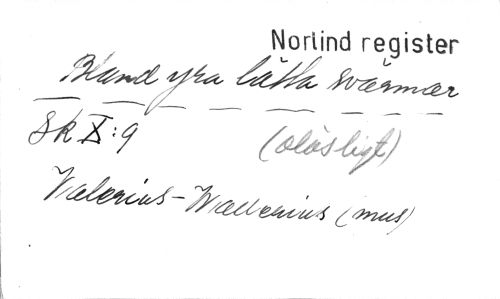 Norlind register
Bland yra lätta svärmar
Sk X:9 (oläsligt)
Valerius - Wallerius (mus)